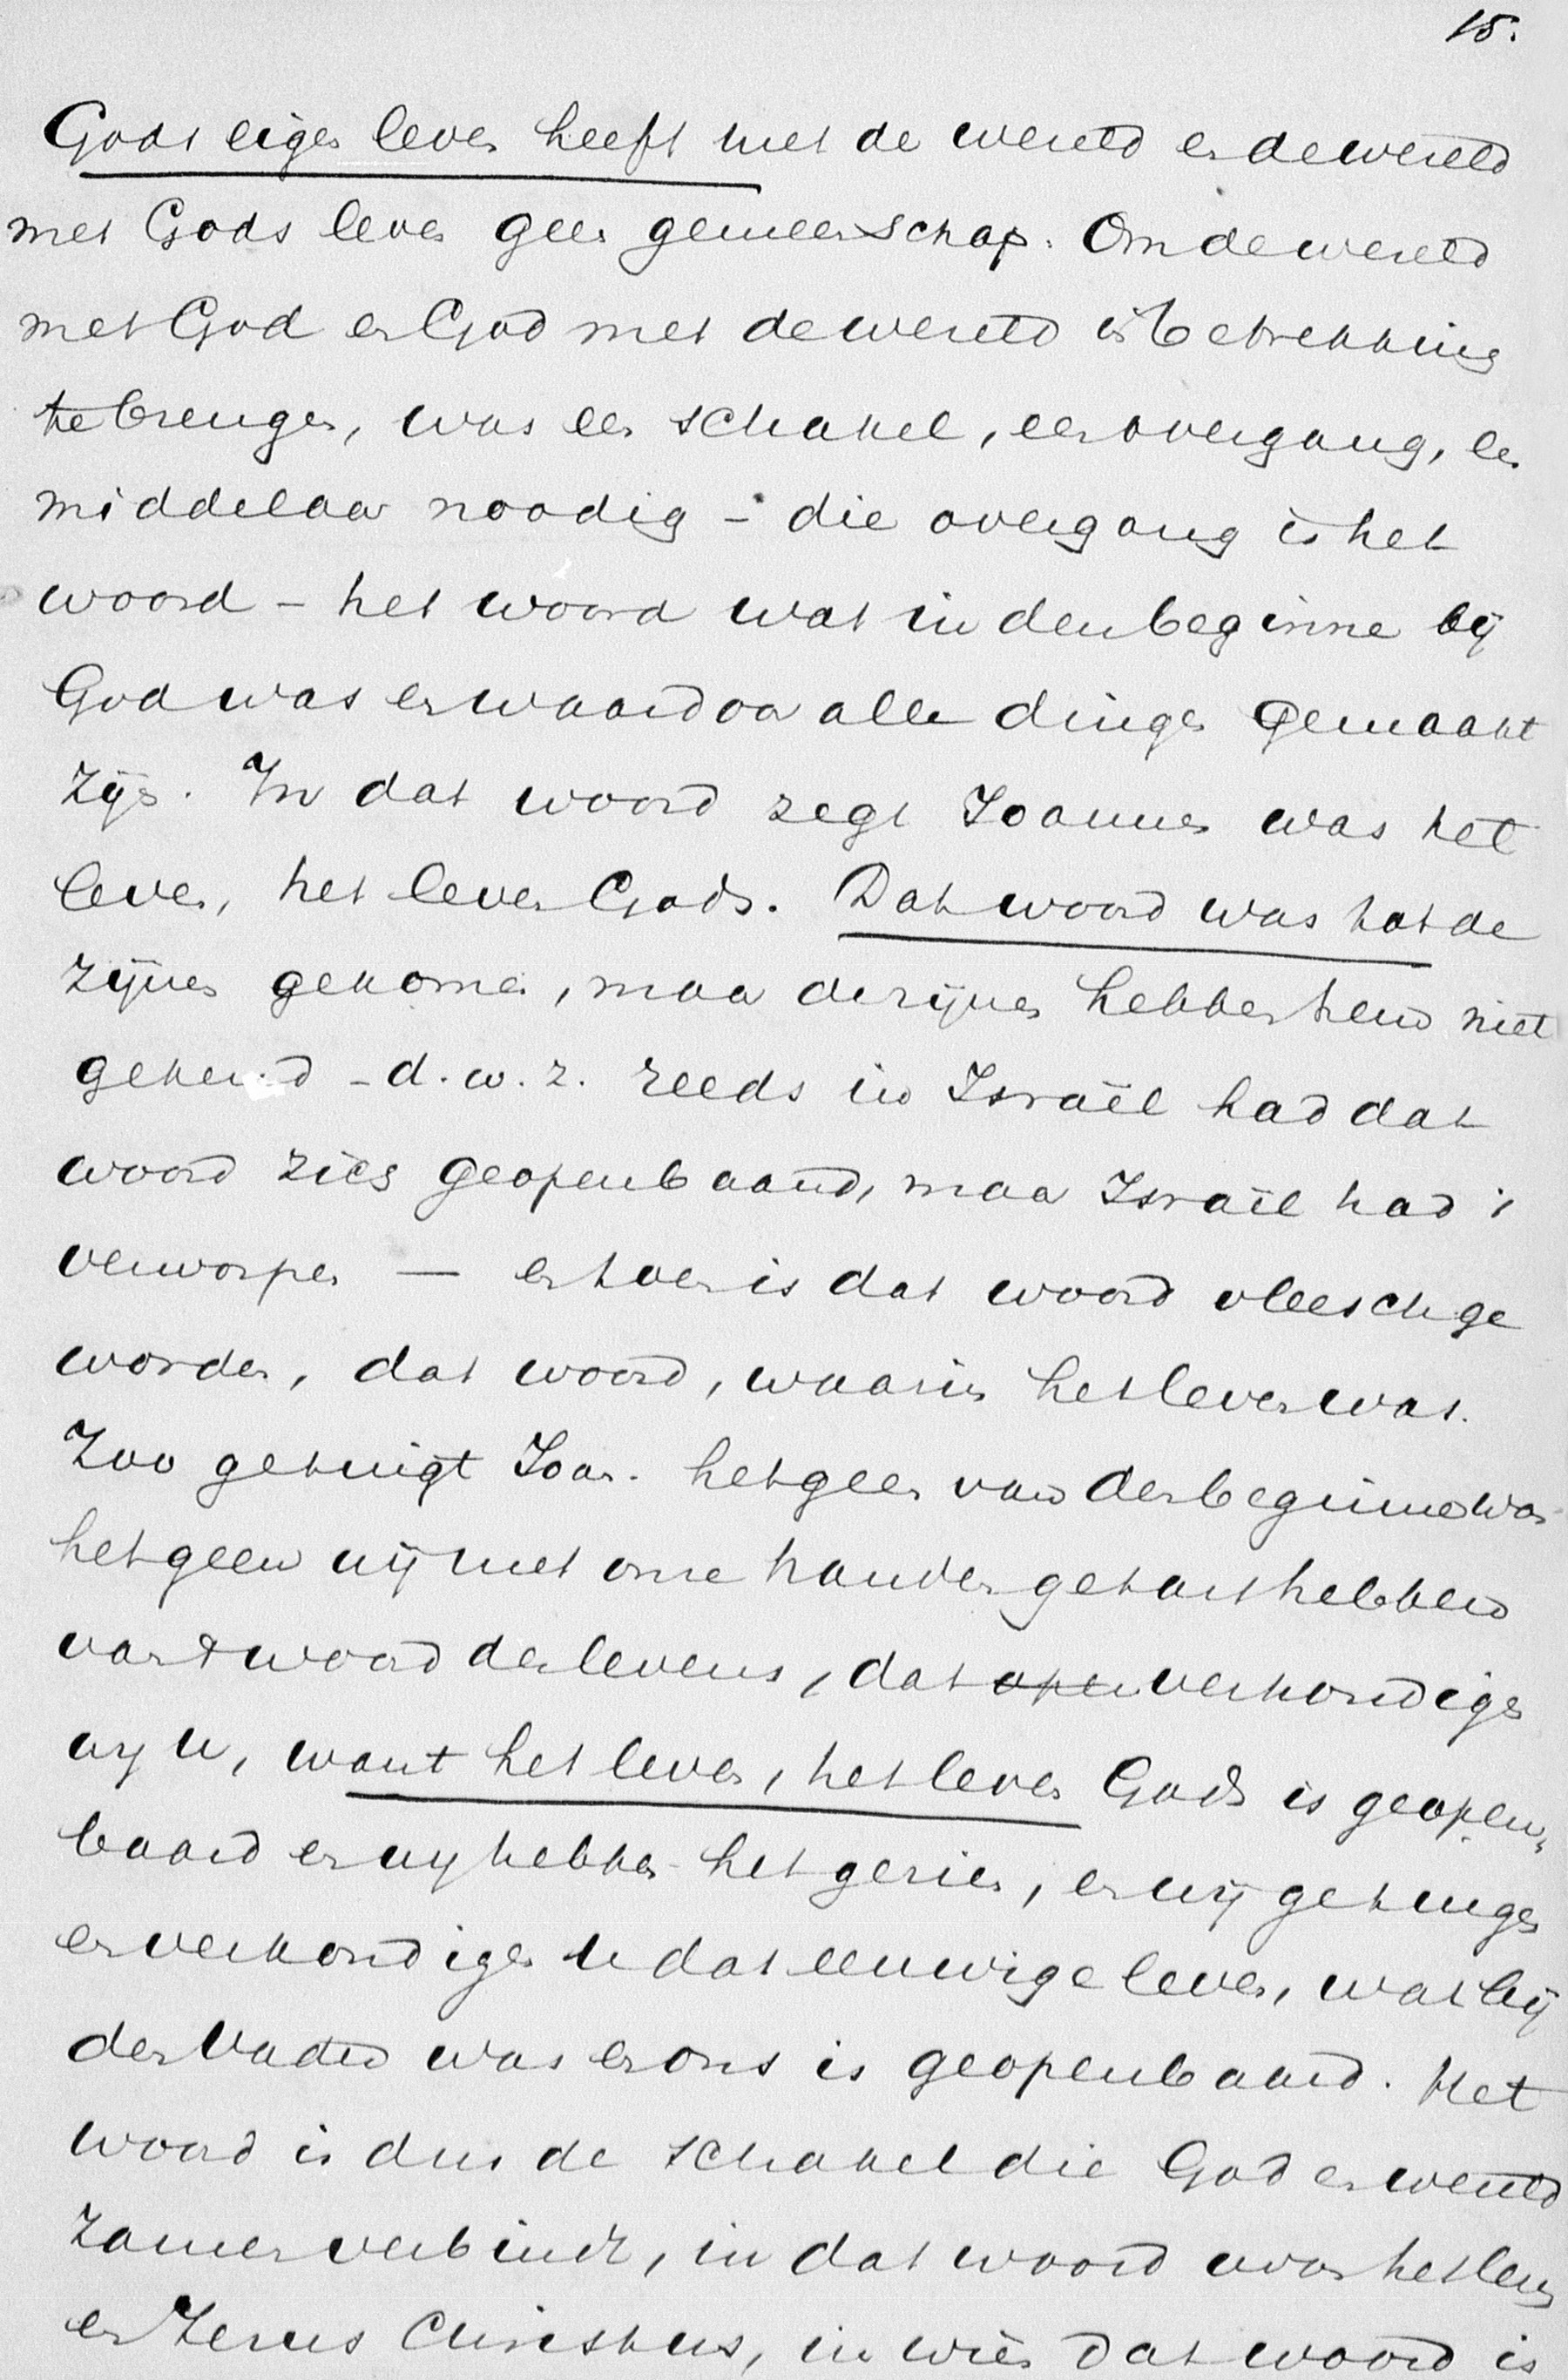 15.
Gods eigen leven heeft met de wereld en de wereld
met Gods leven geen gemeenschap. Om de wereld
met God en God met de wereld in betrekking
te brengen, was een schakel, een overgang, een
middelaar noodig – die overgang is het
woord – het woord wat in den beginne bij
God was en waardoor alle dingen gemaakt
zijn. In dat woord zegt Joannes was het
leven, het leven Gods. Dat woord was tot de
zijnen gekomen, maar de zijnen hebben hem niet
gekend – d.w.z. reeds in Israël had dat
woord zich geopenbaard, maar Israël had 't
verworpen — en toen is dat woord vleesch ge
worden, dat woord, waarin het leven was.
Zoo getuigt Joan. hetgeen van den beginne was
hetgeen wij met onze handen getast hebben
van 't woord des levens, dat open verkondigen
wij u, want het leven, het leven Gods is geopen„
baard en wij hebben het gezien, en wij getuigen
en verkondigen u dat eeuwige leven, wat bij
den Vader was en ons is geopenbaard. Het
woord is dus de schakel die God en wereld
zamen verbindt, in dat woord was het leven
en Jezus Christus, in wien dat woord is